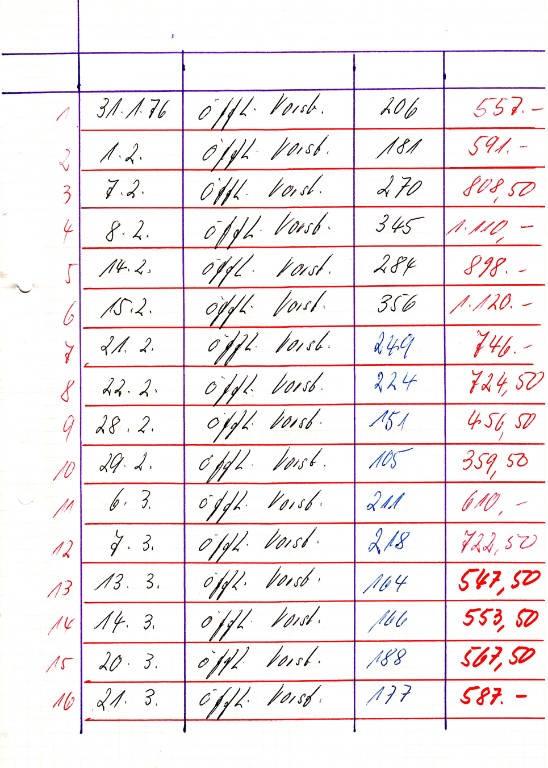 1 31.1.76 öffl. Vorst. 206 557.-
2 1.2. öffl. Vorst. 181 591.-
3 7.2. öffl. Vorst. 270 808,50
4 8.2. öffl. Vorst. 345 1.110,-
5 14.2. öffl. Vorst. 284 898.-
6 15.2. öffl. Vorst. 356 1.120.-
7 21.2. öffl. Vorst. 249 746.-
8 22.2. öffl. Vorst. 224 724,50
9 28.2. öffl. Vorst. 151 456,50
10 29.2. öffl. Vorst. 105 359,50
11 6.3. öffl. Vorst. 211 610,-
12 7.3. öffl. Vorst. 218 722,50
13 13.3. öffl. Vorst. 164 547,50
14 14.3. öffl. Vorst. 166 553,50
15 20.3. öffl. Vorst. 188 567,50
16 21.3. öffl. Vorst. 177 587.-